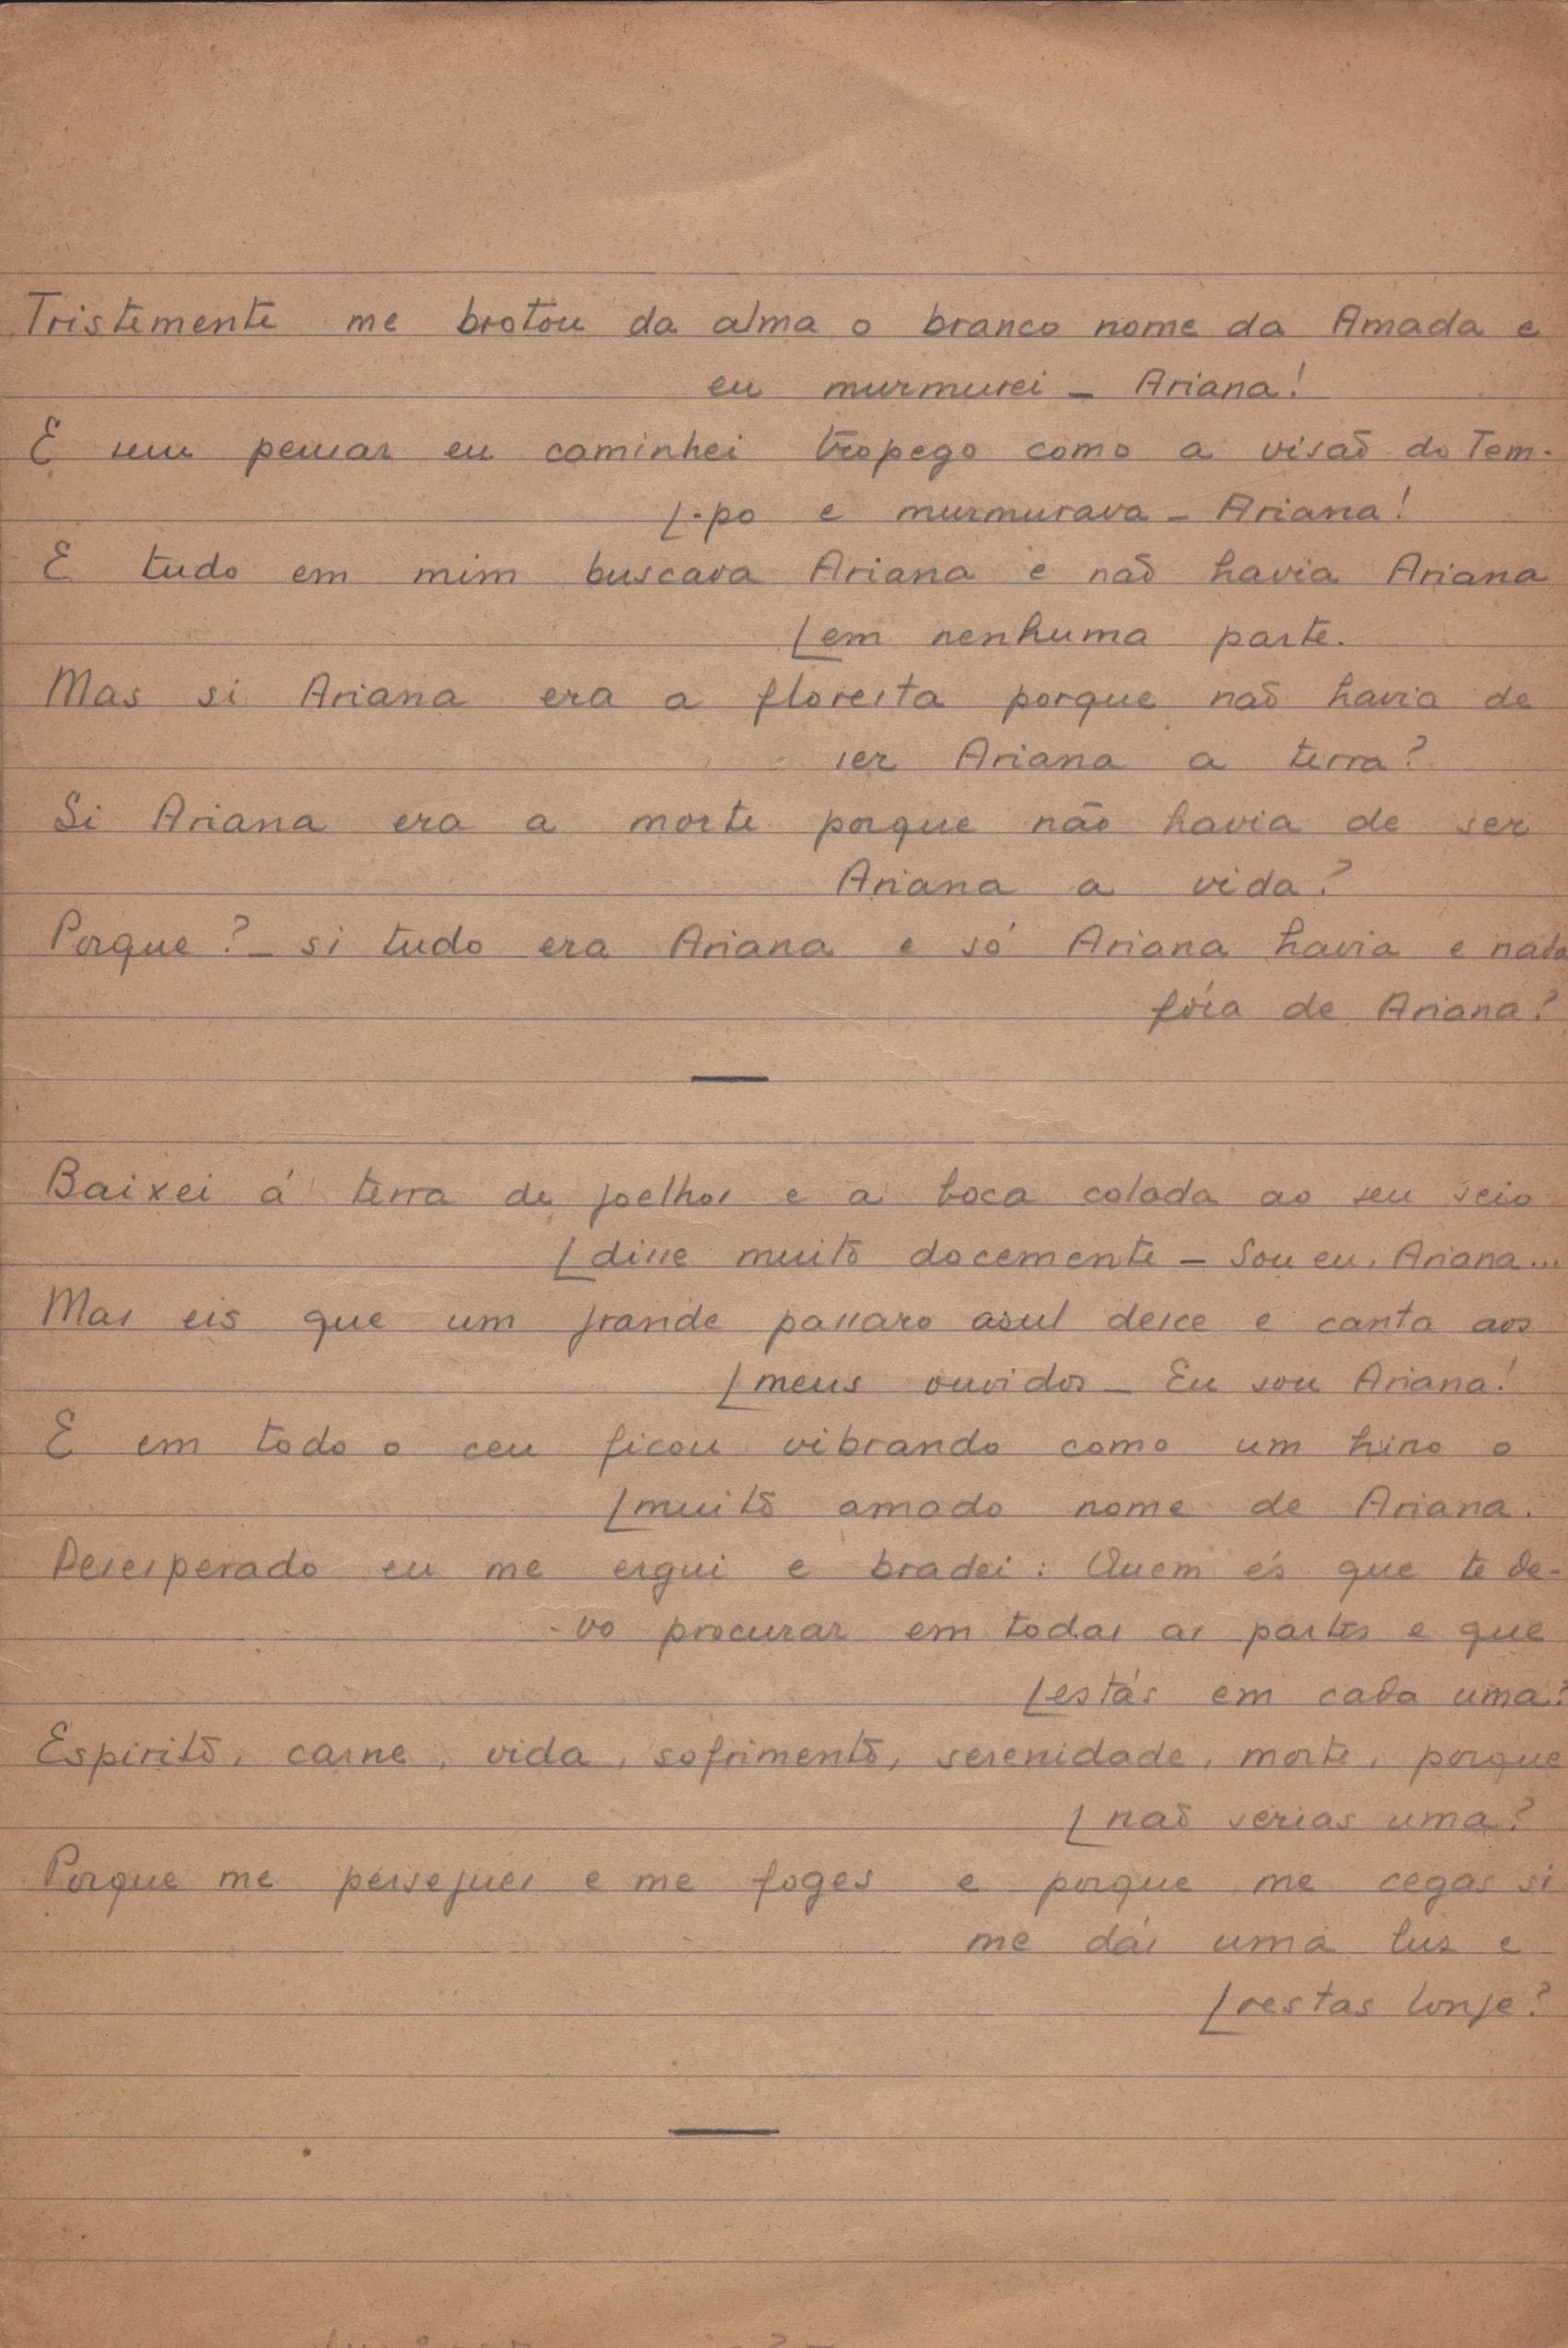 Tristemente me brotou da alma o branco nome da Amada e
eu murmurei — Ariana!
E sem pensar eu caminhei tropego como a visão do Tem-
[-po e murmurava — Ariana!
E tudo em mim buscava Ariana e não havia Ariana
[em nenhuma parte.
Mas si Ariana era a floresta porque não havia de
ser Ariana a terra?
Si Ariana era a morte porque não havia de ser
Ariana a vida?
Porque? — si tudo era Ariana e só Ariana havia e nada
fóra de Ariana?
Baixei á terra de joelhos e a boca colada ao seu seio
[disse muito docemente — Sou eu, Ariana...
Mas eis que um grande passaro asul desce e canta aos
[meus ouvidos — Eu sou Ariana!
E em todo o ceu ficou vibrando como um hino o
[muito amado nome de Ariana.
Desesperado eu me ergui e bradei: Quem és que te de-
-vo procurar em todas as partes e que
[estás em cada uma?
Espirito, carne, vida, sofrimento, serenidade, morte, porque
[não serias uma?
Porque me persegues e me foges e porque me cegas si
me dás uma luz e
[restas longe?